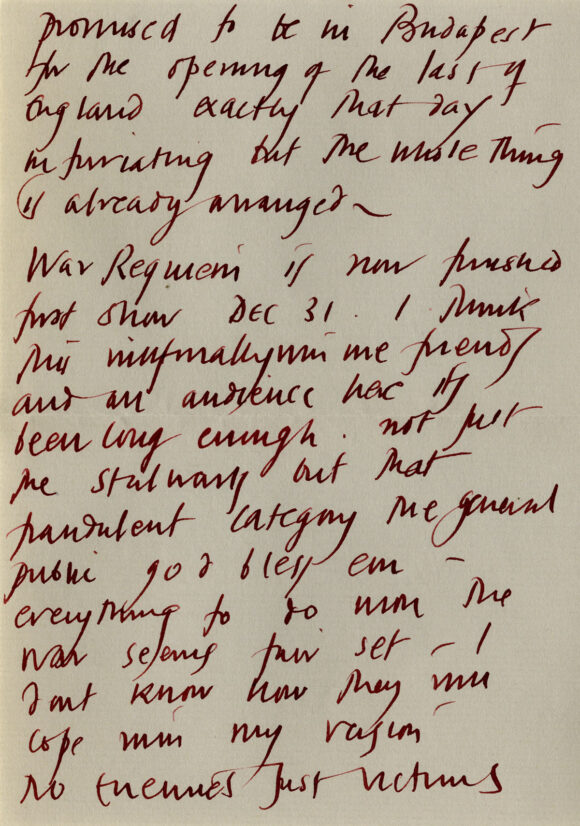 promised to be in Budapest
for the opening of the last of
England exactly that day
infuriating but the whole thing
is already arranged ~
War Requiem is now finished
first show DEC 31. I think
this will finally win me friends
and an audience here its
been long enough. not just
the stalwarts but that
fraudulent category the general
public god bless em –
everything to do with the
war seems fair set – I
dont know how they will
cope with my version –
No Enemies Just victims